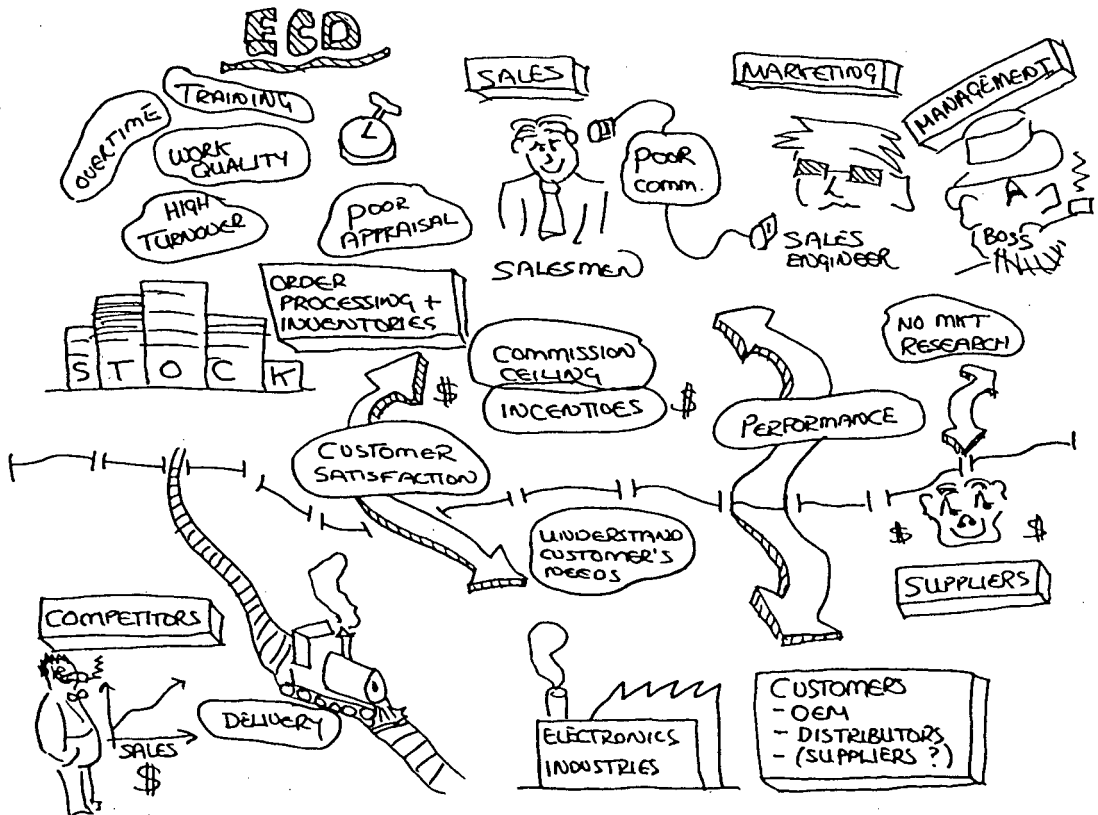 ECD
TRAINING
OVERTIME
WORK
QUALITY
HIGH
TURNOVER
POOR
APPRAISAL
SALES
SALESMEN
POOR
COMM.
MARKETING
SALES
ENGINEER
MANAGEMENT
BOSS
ORDER
PROCESSING +
INVENTORIES
STOCK
$
COMMISSION
CEILING
INCENTIVES
$
NO MKT
RESEARCH
PERFORMANCE
CUSTOMER
SATISFACTION
UNDERSTAND
CUSTOMER'S
NEEDS
$ $
SUPPLIERS
COMPETITORS
SALES
$
DELIVERY
ELECTRONICS
INDUSTRIES
CUSTOMERS
- OEM
- DISTRIBUTORS
- (SUPPLIERS ?)